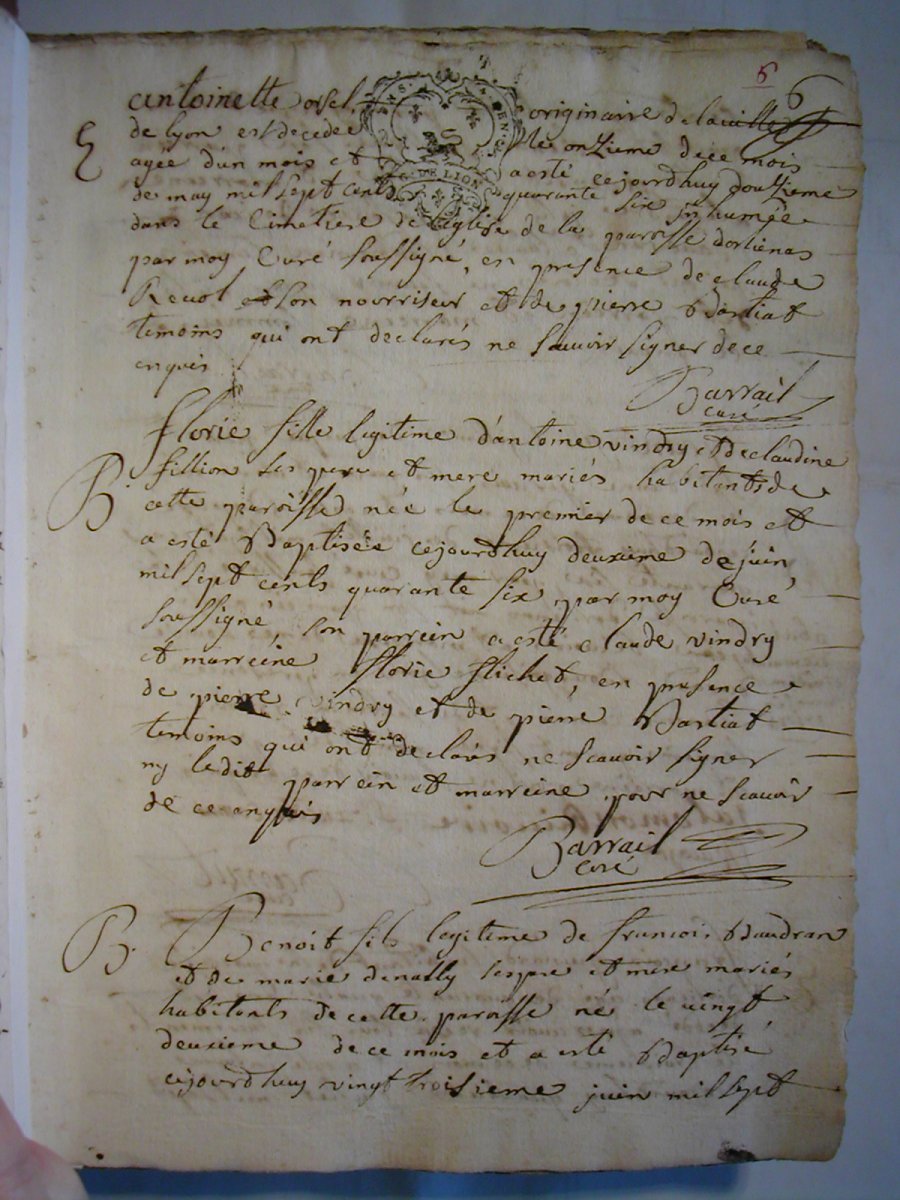 5
6
antoinette orsel originaire de la ville
de lyon est decedée le onzieme de ce mois
E agée d'un mois et a esté cejourdhuy douzieme
de may mil sept cents quarante six inhumée
dans le Cimetiere de l'église de la paroisse dorliénas
par moy Curé soussigné, en presence de claude
Revol son nourriseur et de pierre Bastiat
temoins qui ont declarés ne scavoir signer de ce
enquis
Barrail
curé
GEN DE LION
florie fille legitime d'antoine vindry et de claudine
fillion ses pere et mere mariés habitants de
B. cette paroisse née le premier de ce mois et
a esté Baptisée cejourdhuy deuxieme de juin
mil sept cents quarante six par moy Curé
soussigné, son parrein a esté claude vindry
et marreine florie flichet, en presence
de pierre vindry et de pierre Bastiat
temoins qui ont declarés ne scavoir signer
ny ledit parrein et marreine pour ne scavoir
de ce anquis
Barrail
curé
B. Benoit fils legitime de francois Baudran
et de marie ses pere et mere mariés
habitants de cette paroisse né le vingt
deuxieme de ce mois et a esté Baptisé
cejourdhuy vingt troisieme juin mil sept